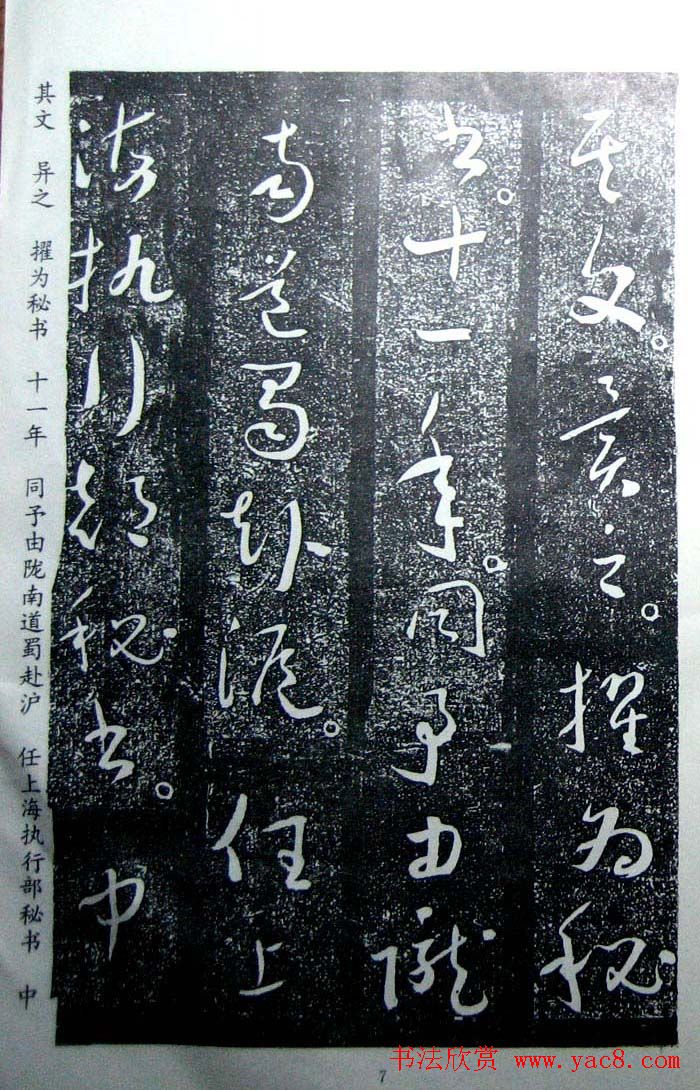 其文。异之。擢为秘
书。十一年。同予由陇
南道蜀赴沪。任上
海执行部秘书。中
其文 异之 擢为秘书 十一年 同予由陇南道蜀赴沪 任上海执行部秘书 中
7
书法欣赏 www.yac8.com